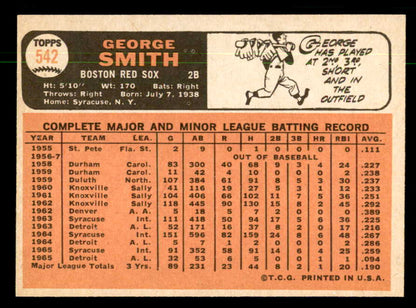 TOPPS
542
GEORGE
SMITH
BOSTON RED SOX 2B
Ht: 5'10" Wt: 170 Bats: Right
Throws: Right Born: July 7, 1938
Home: Syracuse, N. Y.
GEORGE
HAS PLAYED
AT 2ND, 3RD,
SHORT
AND IN
THE
OUTFIELD
COMPLETE MAJOR AND MINOR LEAGUE BATTING RECORD
YEAR TEAM LEA. G AB R H 2B 3B HR RBI AVG.
1955 St. Pete Fla. St. 2 9 0 1 0 0 0 0 .111
1956-7 OUT OF BASEBALL
1958 Durham Carol. 83 300 40 68 9 3 4 24 .227
1959 Durham Carol. 11 42 4 10 2 0 0 2 .238
1959 Duluth North. 107 384 61 91 9 8 6 50 .237
1960 Knoxville Sally 41 116 19 27 1 3 0 16 .233
1961 Knoxville Sally 116 406 66 102 11 7 5 36 .251
1962 Knoxville Sally 118 445 90 130 16 8 2 45 .292
1962 Denver A. A. 5 18 1 0 0 0 0 0 .000
1963 Syracuse Int. 111 418 50 94 17 5 6 36 .225
1963 Detroit A. L. 52 171 16 37 8 2 0 17 .216
1964 Syracuse Int. 151 596 82 159 24 6 8 63 .267
1964 Detroit A. L. 5 7 1 2 0 0 0 2 .286
1965 Syracuse Int. 91 352 58 91 14 4 6 35 .259
1965 Detroit A. L. 32 53 6 5 0 0 1 1 .094
Major League Totals 3 Yrs. 89 231 23 44 8 2 1 20 .190
©T.C.G. PRINTED IN U.S.A.